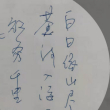 白日依山尽
黄河入海
欲穷千里